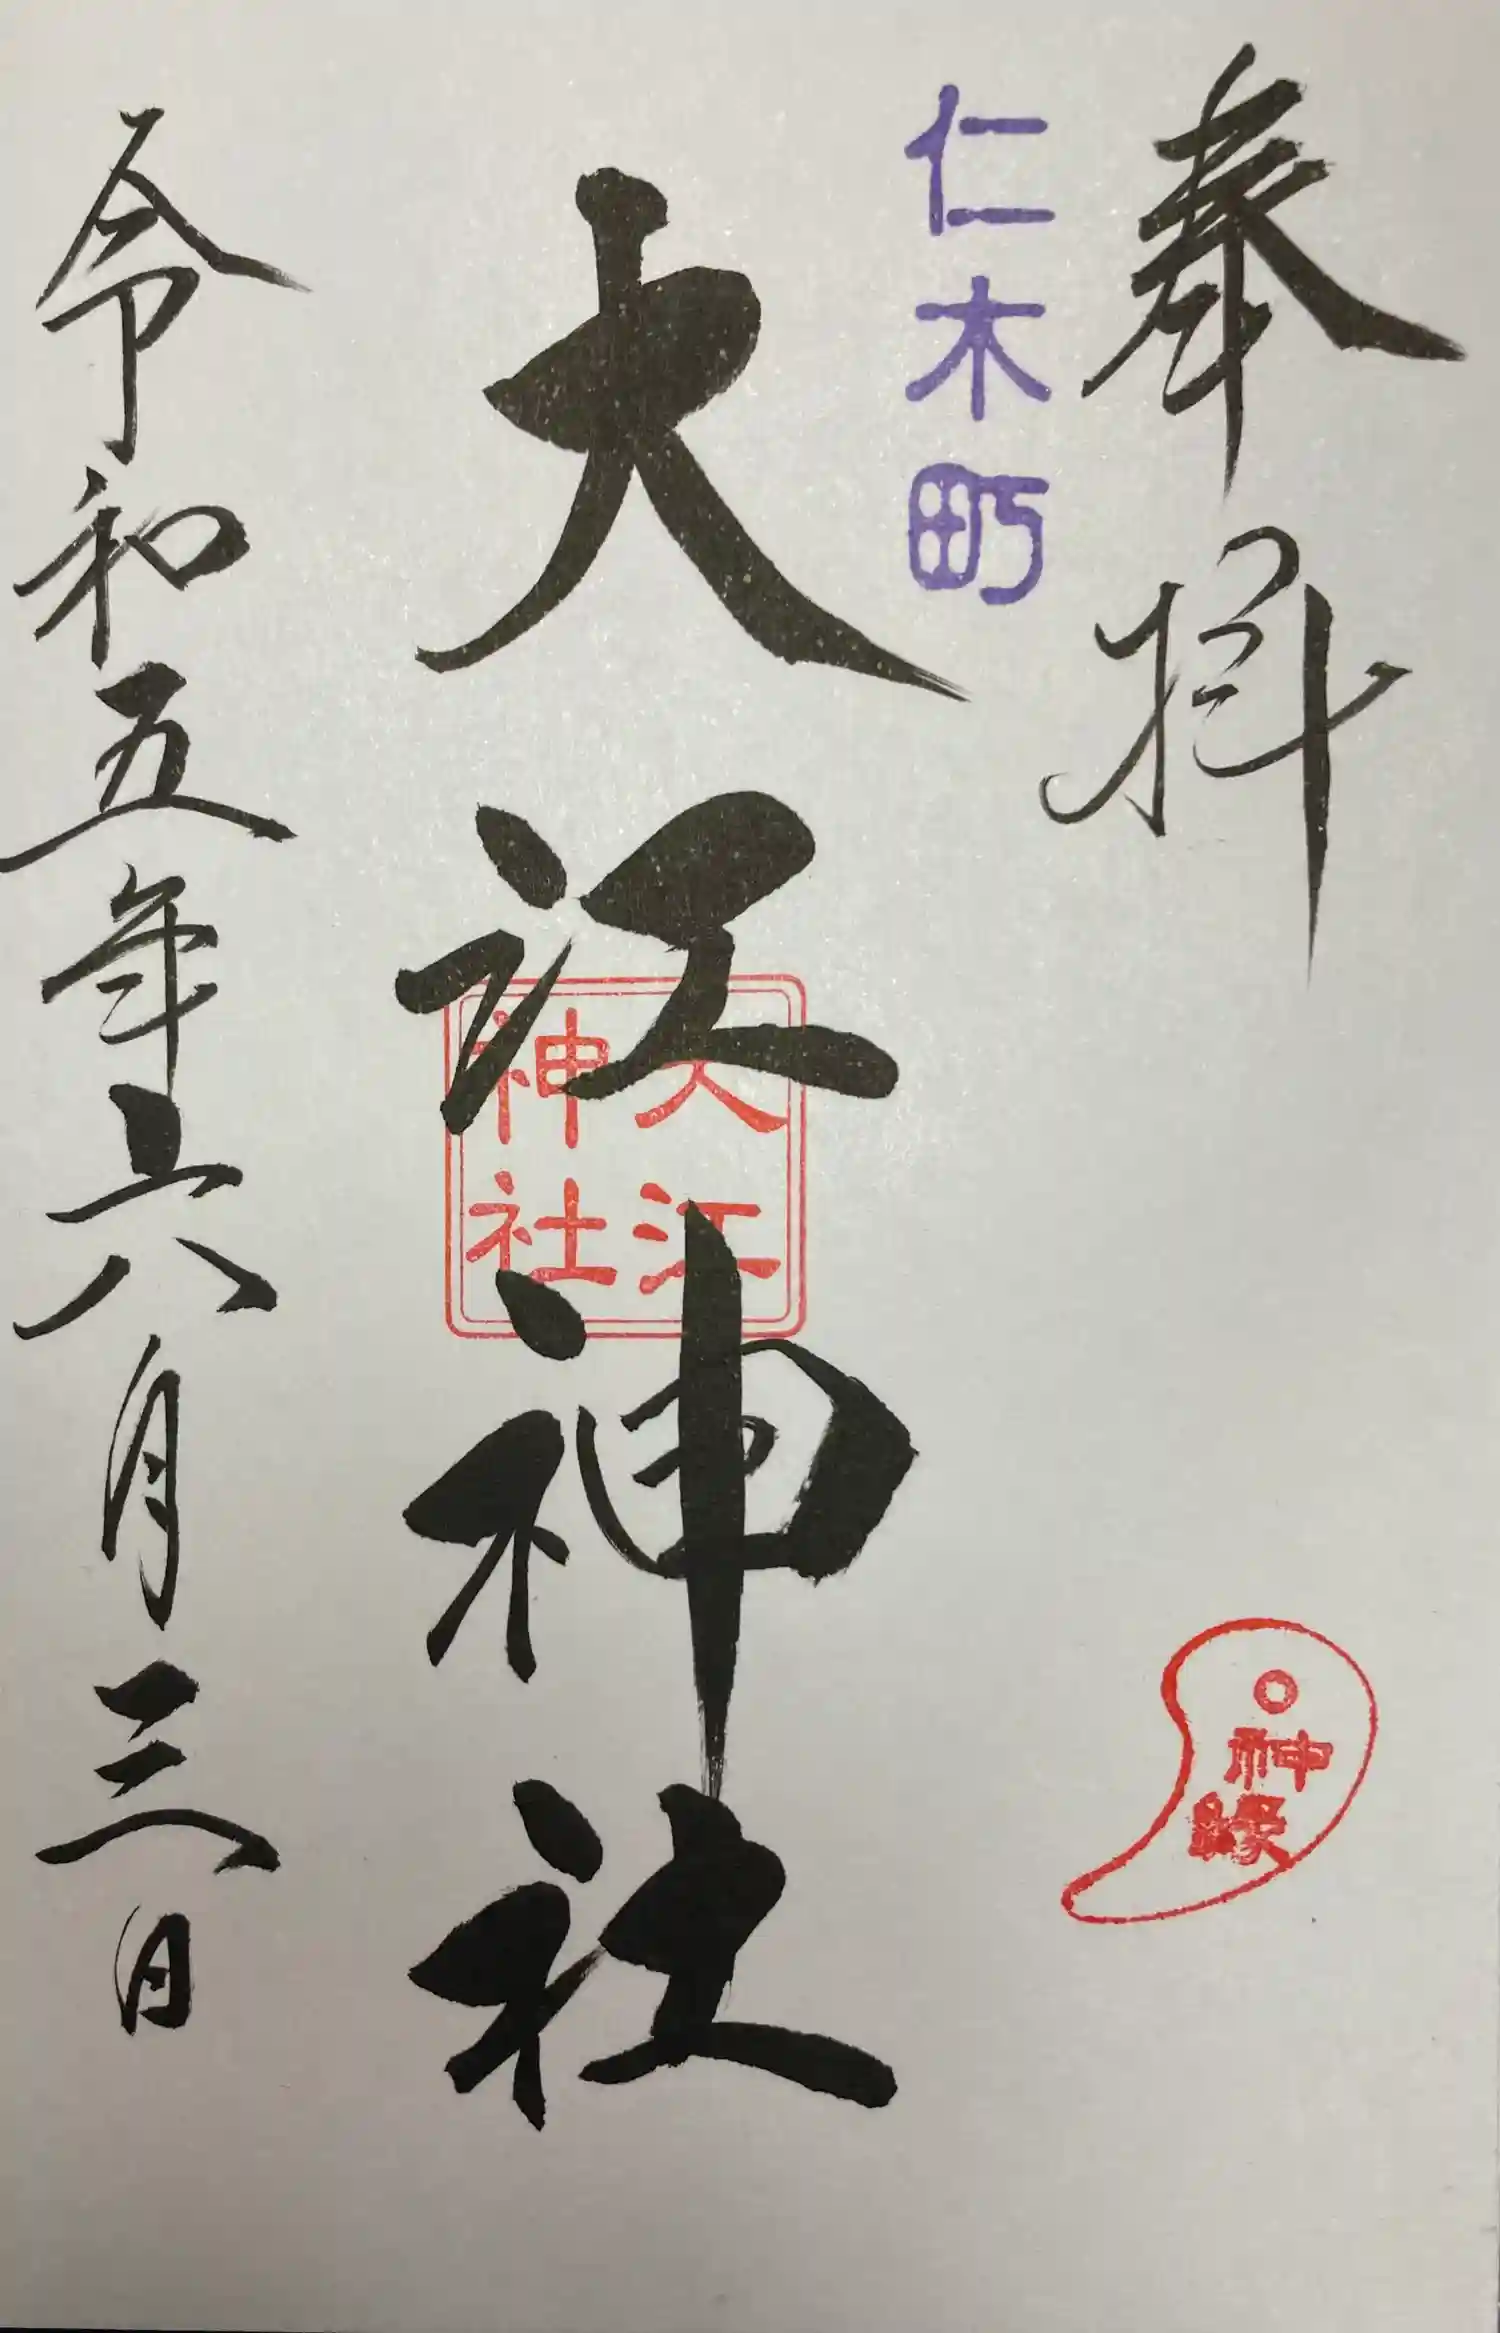 奉拝
仁木町
大江神社
大江
神社
令和五年六月三日
神
縁